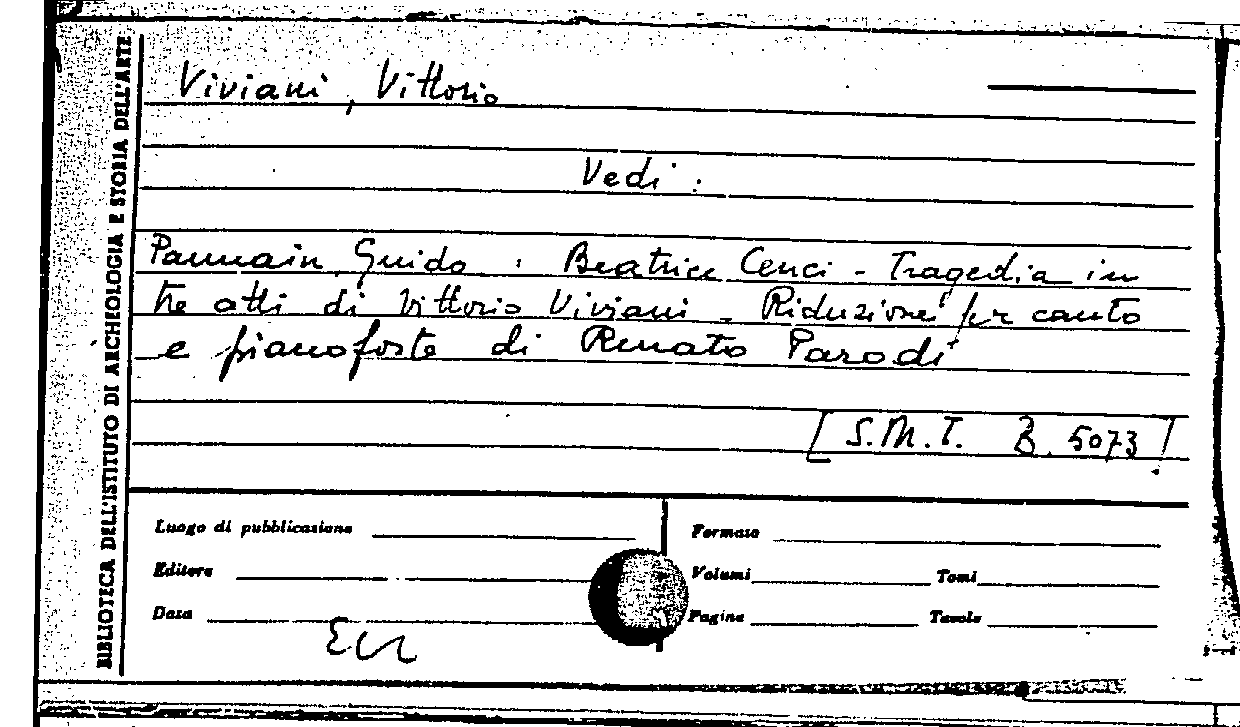 BIBLIOTECA DELL'ISTITUTO DI ARCHEOLOGIA E STORIA DELL'ARTE
Viviani, Vittorio
Vedi :
Pannain Guido : Beatrice Cenci - Tragedia in
tre atti di Vittorio Viviani - Riduzione per canto
e pianoforte di Renato Parodi
[S.M.T. B. 5073]
Luogo di pubblicazione
Formato
Editore
Volumi
Tomi
Data
Pagine
Tavole